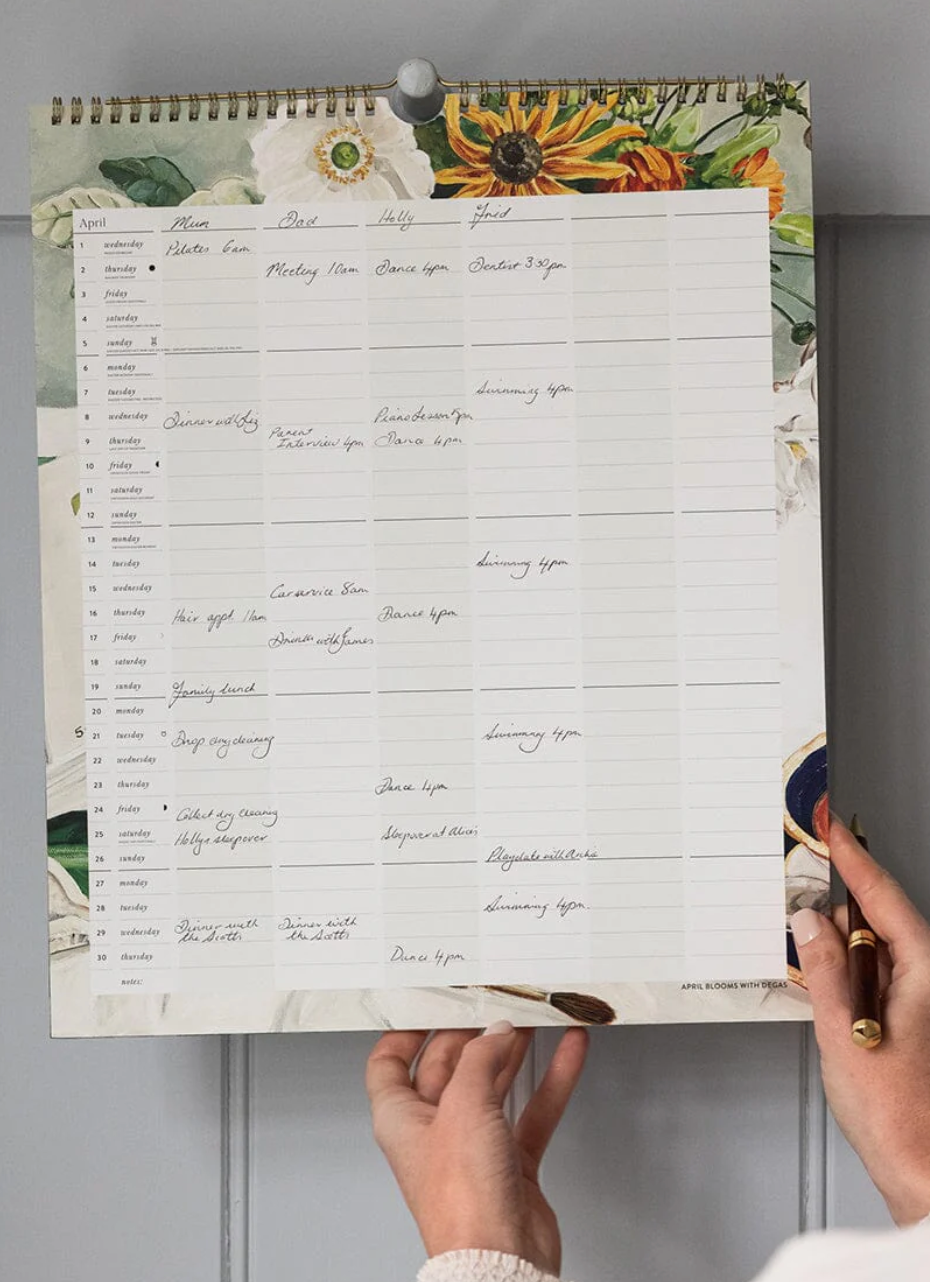 April Mum Dad Holly Fred
1 wednesday Pilates 6am
2 thursday Meeting 10am Dance 4pm Dentist 3:30pm
3 friday
4 saturday
5 sunday
6 monday
7 tuesday Swimming 4pm
8 wednesday Dinner with Liz Piano Lesson 5pm
9 thursday Parent Interview 4pm Dance 4pm
10 friday
11 saturday
12 sunday
13 monday
14 tuesday Swimming 4pm
15 wednesday Car service 8am
16 thursday Hair appt. 11am Dance 4pm
17 friday Drinks with James
18 saturday
19 sunday Family lunch
20 monday
21 tuesday Drop dry cleaning Swimming 4pm
22 wednesday
23 thursday Dance 4pm
24 friday Collect dry cleaning
25 saturday Holly's sleepover Sleepover at Alice's
26 sunday Playdate with Archie
27 monday
28 tuesday Swimming 4pm.
29 wednesday Dinner with the Scotts Dinner with the Scotts
30 thursday Dance 4pm
notes:
APRIL BLOOMS WITH DEGAS